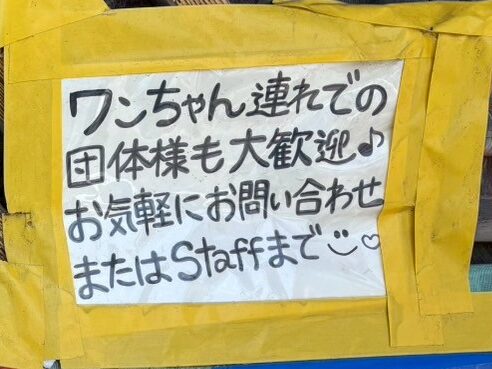 ワンちゃん連れでの
団体様も大歓迎♪
お気軽にお問い合わせ
またはStaffまで